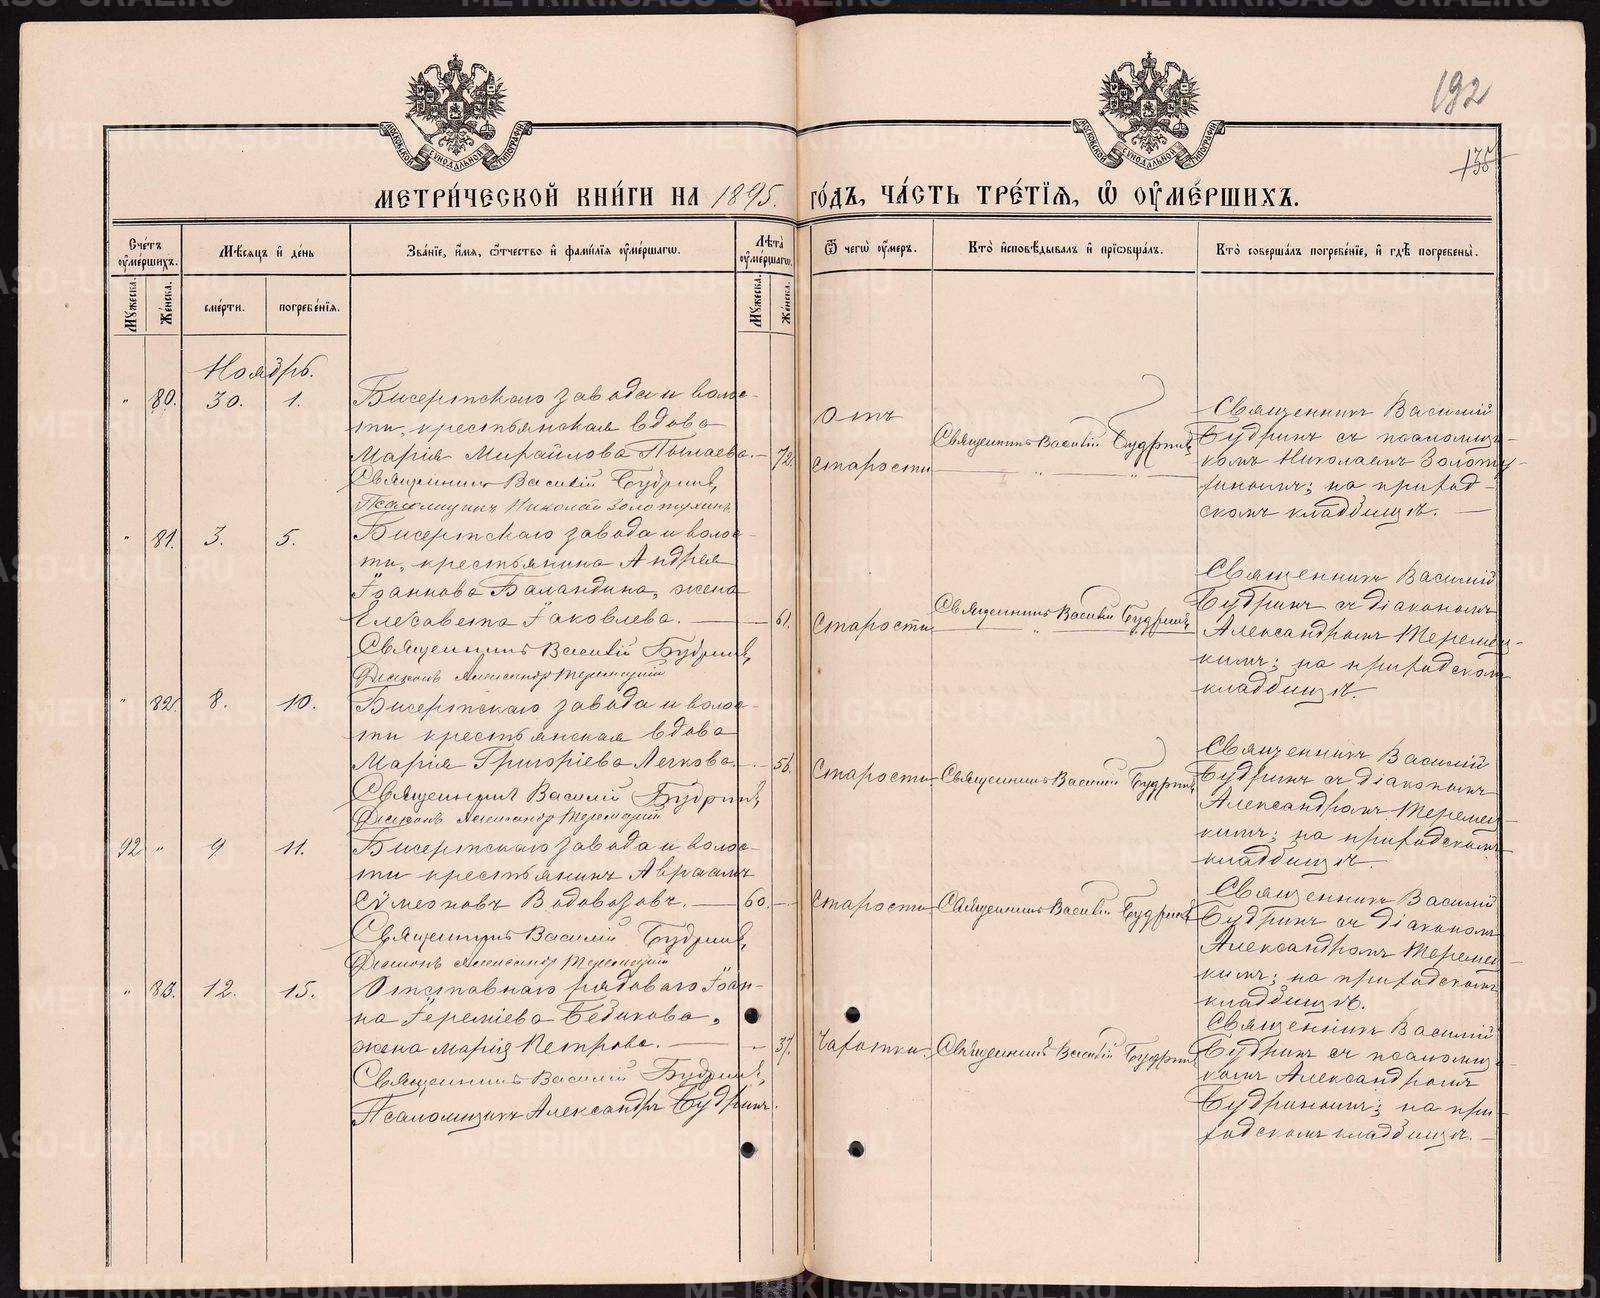 192
135
МЕТРИ́ЧЕСКОЙ КНИ́ГИ НА 1895. ГО́ДЪ, ЧА́СТЬ ТРЕ́ТІЯ, Ѡ ОУМЕ́РШИХЪ.
Сче́тъ оуме́ршихъ.
Му́жеска.
Же́нска.
Мѣ́сяцъ и де́нь
сме́рти.
погребе́нія.
Зва́ніе, и́мя, ѻ́тчество и фами́лія оуме́ршагѡ.
Лѣ́та оуме́ршагѡ.
Му́жеска.
Же́нска.
Ѿ чегѡ̀ оу́меръ.
Кто̀ исповѣ́дывалъ и пріѡбща́лъ.
Кто̀ соверша́лъ погребе́ніе, и гдѣ̀ погребены̀.
Ноябрь.
" 80. 30. 1.
Бисертскаго завода и волос-
ти, крестьянская вдова
Марія Михайлова Пылаева. — 72.
Священникъ Василій Будринъ,
Псаломщикъ Николай Золотухинъ
Отъ
старости
Священникъ Василій Будринъ
Священникъ Василій
Будринъ съ псаломщи-
комъ Николаемъ Золоту-
хинымъ; на приход-
скомъ кладбищѣ. —
" 81. 3. 5.
Бисертскаго завода и волос-
ти, крестьянина Андрея
Іоаннова Баландина, жена
Елисавета Іаковлева. — 61.
Священникъ Василій Будринъ,
Діаконъ Александр Теремецкій
Старости
Священникъ Василій Будринъ
Священникъ Василій
Будринъ съ діакономъ
Александромъ Теремец-
кимъ; на приходскомъ
кладбищѣ.
" 82. 8. 10.
Бисертскаго завода и волос-
ти крестьянская вдова
Марія Григоріева Легкова. — 56.
Священникъ Василій Будринъ,
Діаконъ Александр Теремецкій
Старости.
Священникъ Василій Будринъ
Священникъ Василій
Будринъ съ діакономъ
Александромъ Теремец-
кимъ; на приходскомъ
кладбищѣ
92 " 9 11.
Бисертскаго завода и волос-
ти крестьянинъ Авраамъ
Сѵмеоновъ Водовозовъ. — 60. —
Священникъ Василій Будринъ,
Діаконъ Александр Теремецкій
Старости
Священникъ Василій Будринъ
Священникъ Василій
Будринъ съ діакономъ
Александромъ Теремец-
кимъ; на приходскомъ
кладбищѣ.
" 83. 12. 15.
Отставнаго рядоваго Іоан-
на Іереміева Бедикова,
жена Марія Петрова. — 37.
Священникъ Василій Будринъ,
Псаломщикъ Александръ Будринъ.
Чахотки.
Священникъ Василій Будринъ
Священникъ Василій
Будринъ съ псаломщи-
комъ Александромъ
Будринымъ; на при-
ходскомъ кладбищѣ. —
METRIKI.GASO-URAL.RU